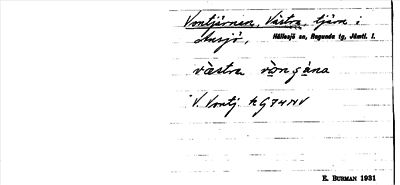 Vontjärnen, Västra tjärn i
Ansjö, Hällesjö sn, Ragunda tg, Jämtl. l.
västra
V. Vontj.
E. BURMAN 1931